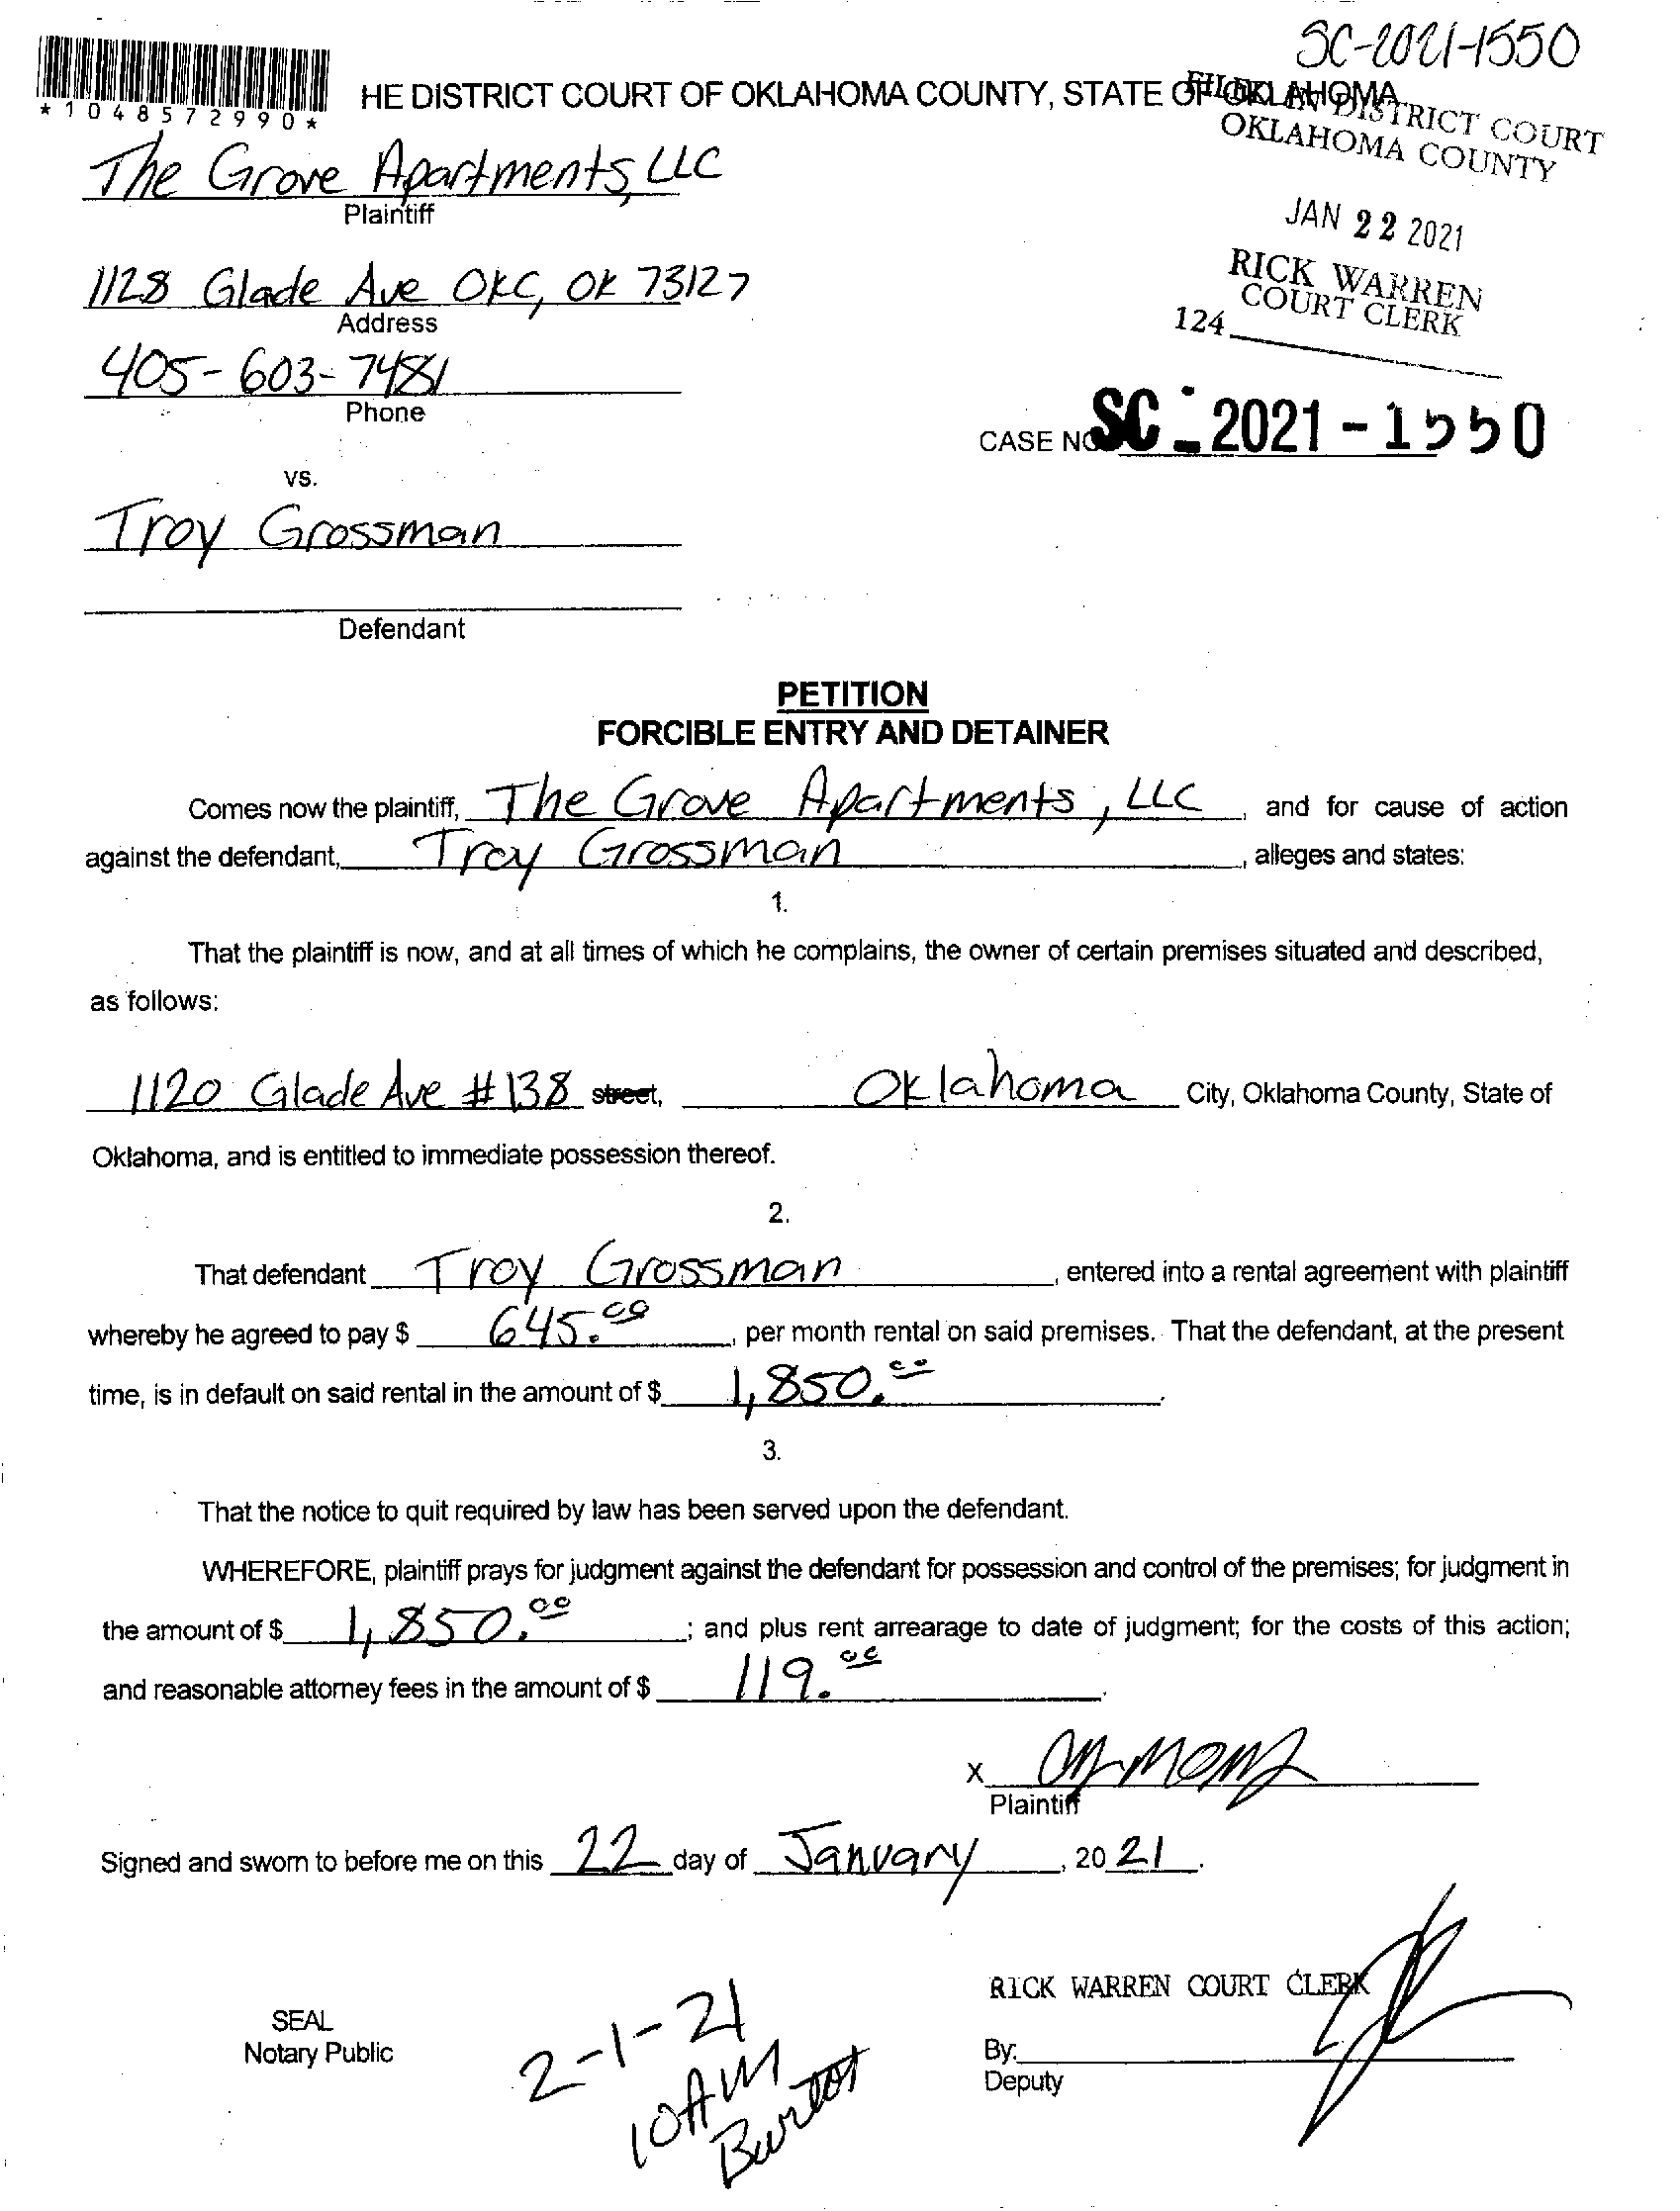 SC-2021-1550
*1048572990*
HE DISTRICT COURT OF OKLAHOMA COUNTY, STATE OF OKLAHOMA
FILED IN DISTRICT COURT
OKLAHOMA COUNTY
The Grove Apartments, LLC
Plaintiff
JAN 22 2021
1128 Glade Ave OKC, OK 73127
Address
RICK WARREN
COURT CLERK
124
405-603-7481
Phone
CASE NO SC - 2021 - 1550
vs.
Troy Grossman
Defendant
PETITION
FORCIBLE ENTRY AND DETAINER
Comes now the plaintiff, The Grove Apartments, LLC, and for cause of action
against the defendant, Troy Grossman, alleges and states:
1.
That the plaintiff is now, and at all times of which he complains, the owner of certain premises situated and described,
as follows:
1120 Glade Ave #138 street, Oklahoma City, Oklahoma County, State of
Oklahoma, and is entitled to immediate possession thereof.
2.
That defendant Troy Grossman, entered into a rental agreement with plaintiff
whereby he agreed to pay $ 645.00, per month rental on said premises. That the defendant, at the present
time, is in default on said rental in the amount of $ 1,850.00.
3.
That the notice to quit required by law has been served upon the defendant.
WHEREFORE, plaintiff prays for judgment against the defendant for possession and control of the premises; for judgment in
the amount of $ 1,850.00; and plus rent arrearage to date of judgment; for the costs of this action;
and reasonable attorney fees in the amount of $ 119.00.
X
Plaintiff
Signed and sworn to before me on this 22 day of January, 2021.
RICK WARREN COURT CLERK
SEAL
Notary Public
By:
Deputy
2-1-21
10AM
Burton